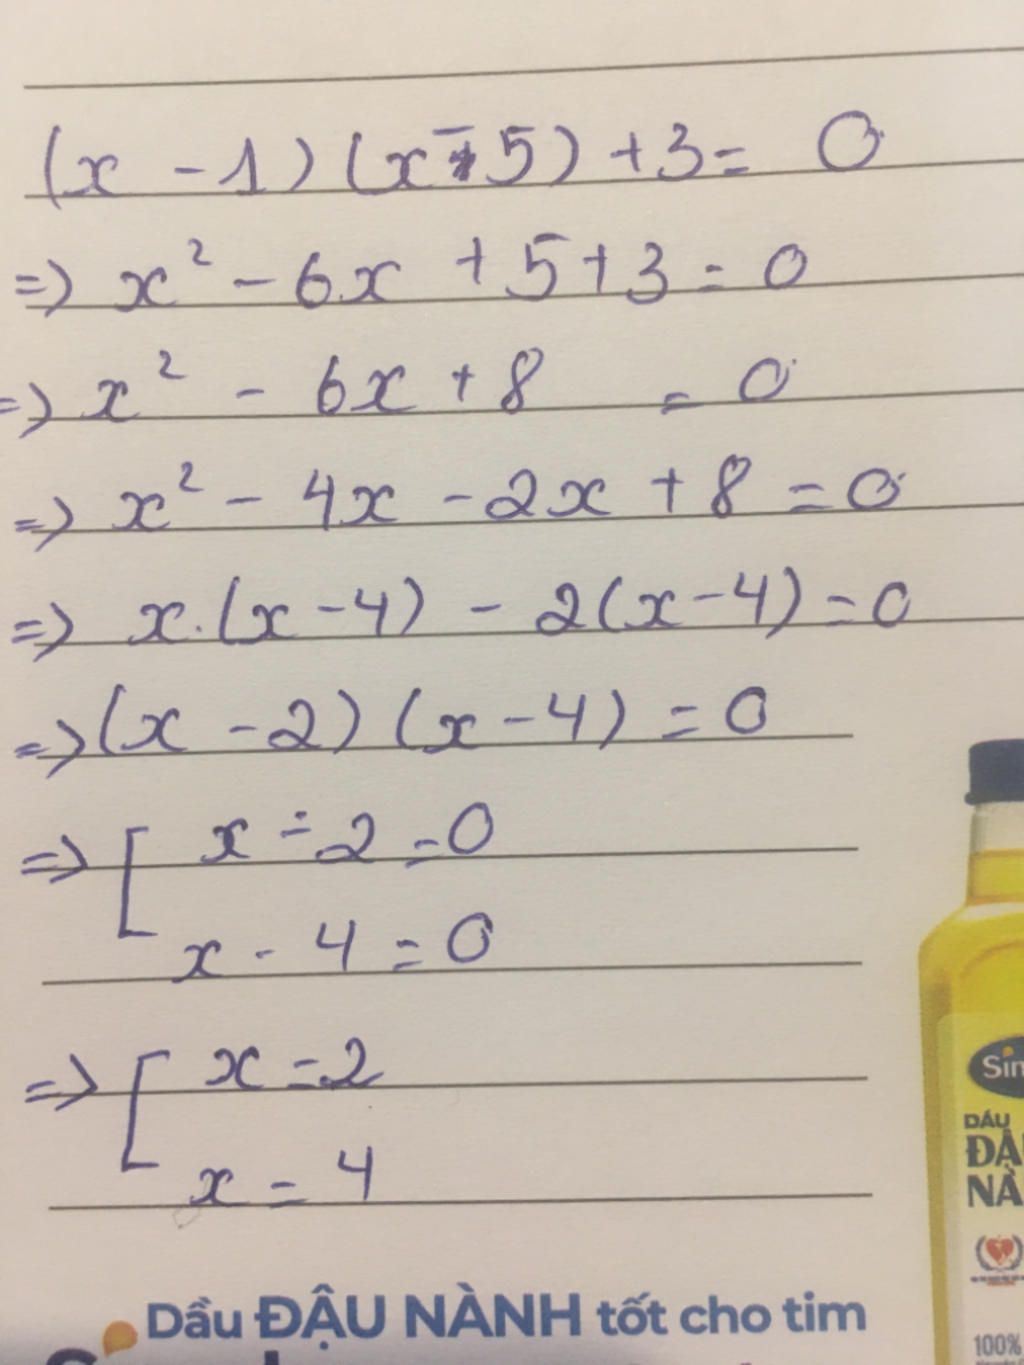 (x - 1) (x - 5) + 3 = 0
=> x² - 6x + 5 + 3 = 0
=> x² - 6x + 8 = 0
=> x² - 4x - 2x + 8 = 0
=> x.(x - 4) - 2(x - 4) = 0
=> (x - 2) (x - 4) = 0
=> [ x - 2 = 0
x - 4 = 0
=> [ x = 2
x = 4
Sim
DẦU
ĐẬU
NÀ
100%
Dầu ĐẬU NÀNH tốt cho tim